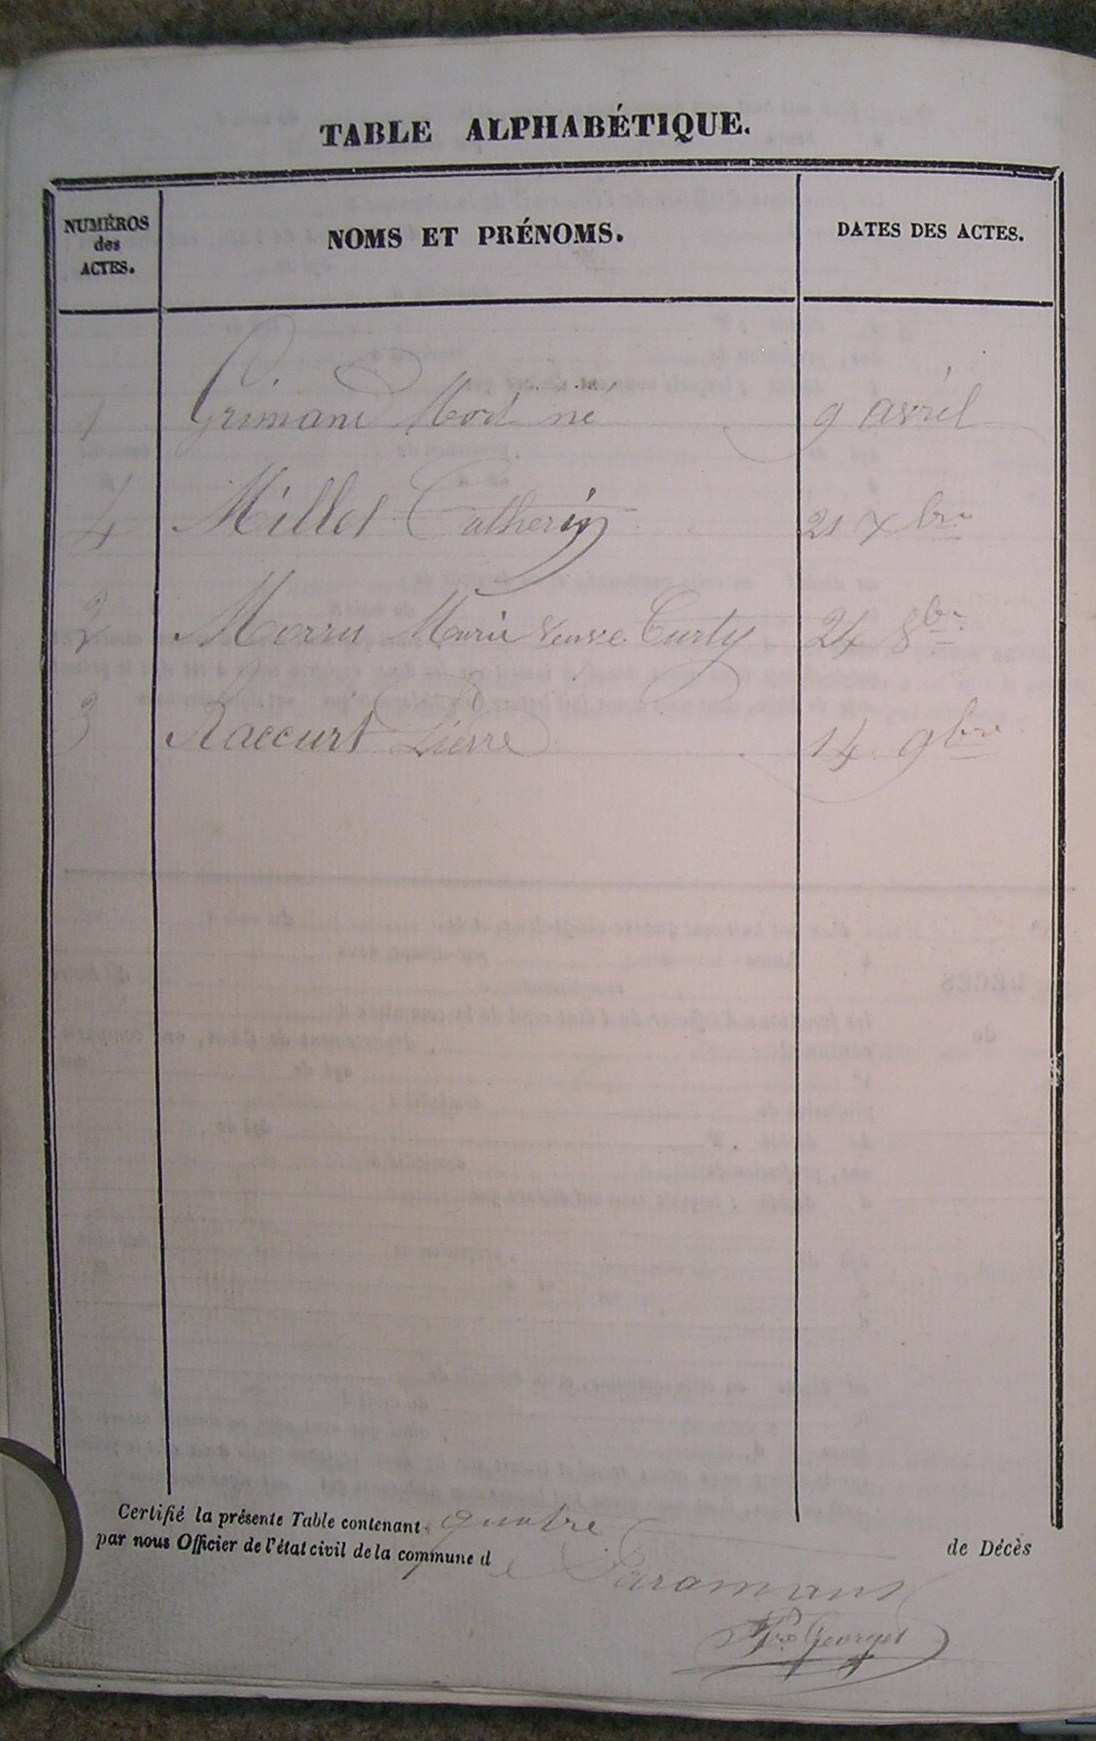 TABLE ALPHABÉTIQUE.
NUMÉROS des ACTES.
NOMS ET PRÉNOMS.
DATES DES ACTES.
1 Grimani 9 avril
4 Millet Catherin 21 Xbre
2 Morru Marie veuve Curty 24 8bre
3 Raccurt Pierre 14 9bre
Certifié la présente Table contenant quatre de Décès
par nous Officier de l'état civil de la commune de Faramans
Georges